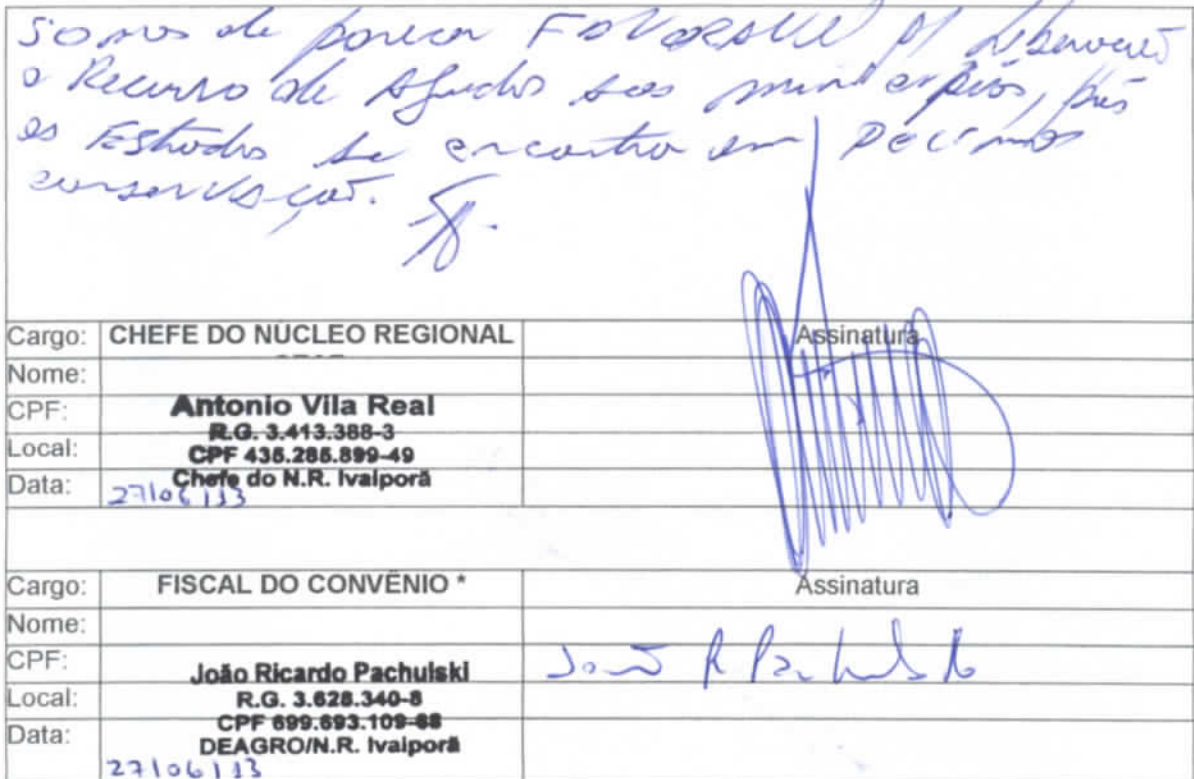 Somos de parecer FAVORAVEL p/ liberação
o Recurso de Ajuda aos municípios, pois
as Estradas se encontra em
conservação.
Cargo: CHEFE DO NÚCLEO REGIONAL Assinatura
Nome:
CPF: Antonio Vila Real
R.G. 3.413.388-3
Local: CPF 435.285.899-49
Data: Chefe do N.R. Ivaiporã
27/06/13
Cargo: FISCAL DO CONVÊNIO * Assinatura
Nome:
CPF: João Ricardo Pachulski João R Pachulski
Local: R.G. 3.628.340-8
CPF 699.693.109-68
Data: DEAGRO/N.R. Ivaiporã
27/06/13